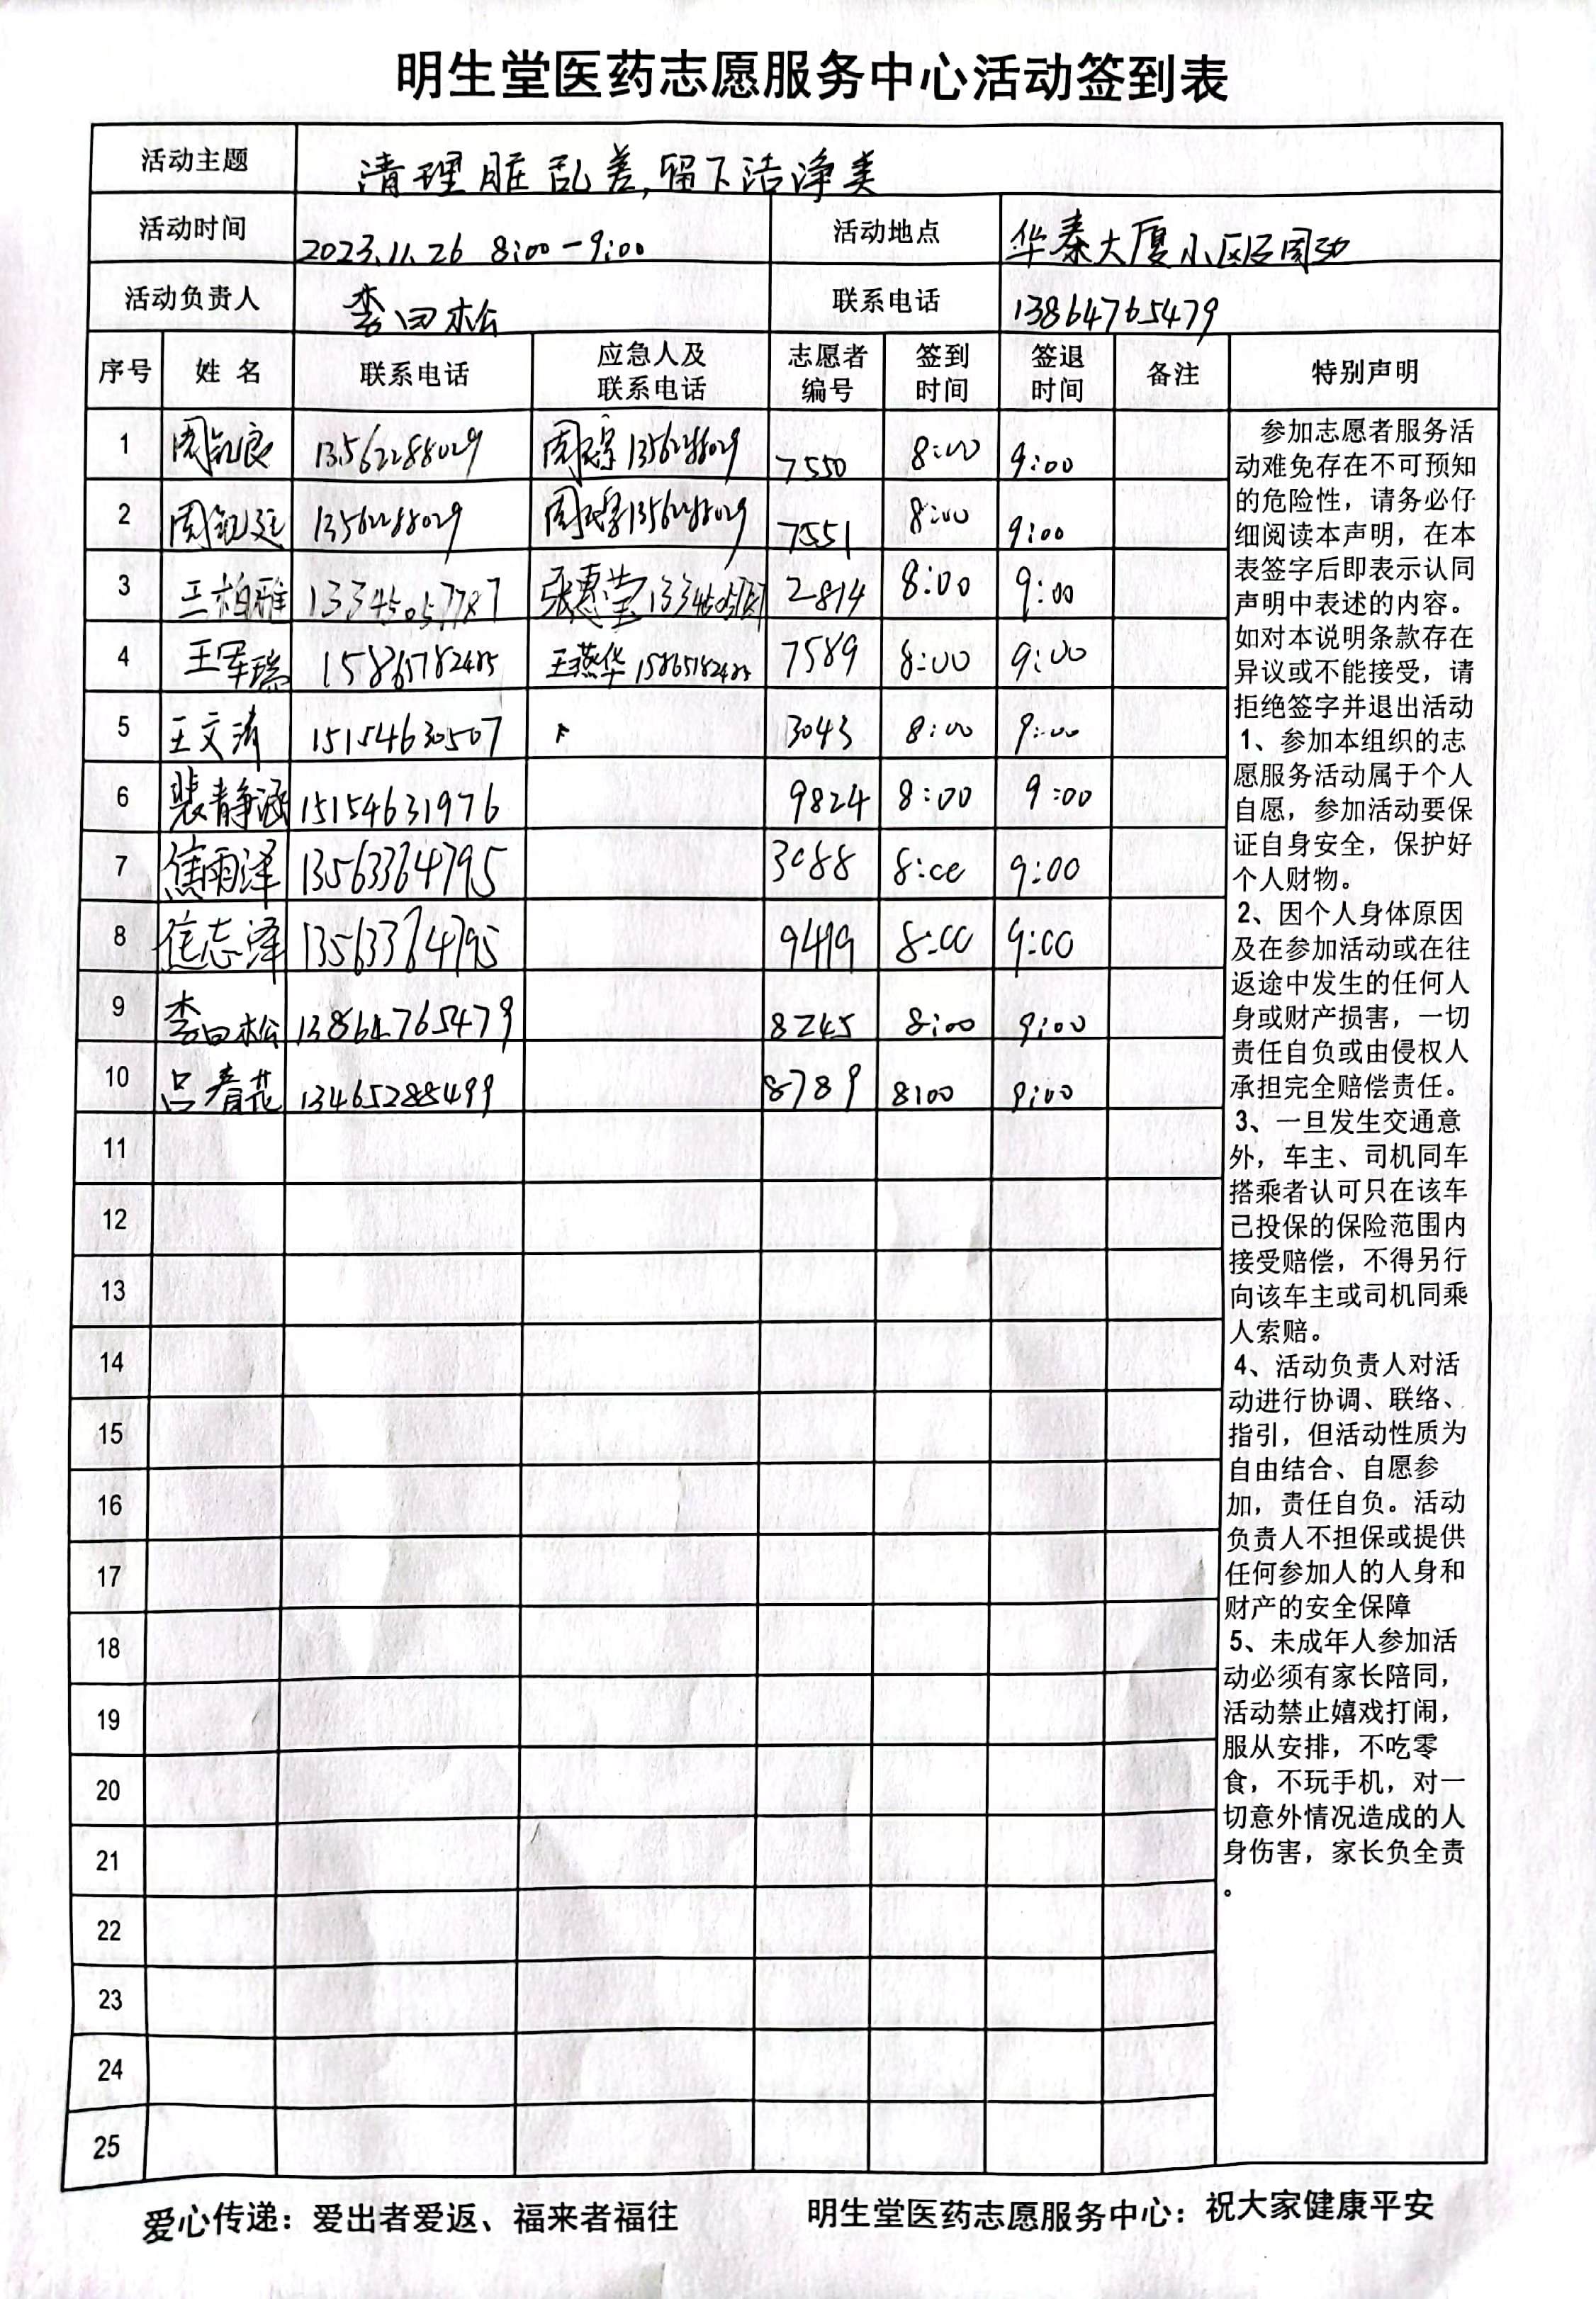 明生堂医药志愿服务中心活动签到表
活动主题 清理脏乱差,留下洁净美
活动时间 2023.11.26 8:00-9:00 活动地点 华泰大厦小区及周边
活动负责人 李曰松 联系电话 13864765479
序号 姓名 联系电话 应急人及联系电话 志愿者编号 签到时间 签退时间 备注 特别声明
1 周 13562288029 周 13562288029 7550 8:00 9:00
2 周 13562288029 周 13562288029 7551 8:00 9:00
3 王柏雅 13345057787 张惠莹 2814 8:00 9:00
4 王军瑞 15865182485 王燕华 15865182485 7589 8:00 9:00
5 王文清 15154630507 3043 8:00 9:00
6 裴静涵 15154631976 9824 8:00 9:00
7 焦雨泽 13563364795 3088 8:00 9:00
8 焦志泽 13563364795 9419 8:00 9:00
9 李曰松 13864765479 8245 8:00 9:00
10 吕春花 13465288499 8789 8:00 9:00
11
12
13
14
15
16
17
18
19
20
21
22
23
24
25
参加志愿者服务活
动难免存在不可预知
的危险性，请务必仔
细阅读本声明，在本
表签字后即表示认同
声明中表述的内容。
如对本说明条款存在
异议或不能接受，请
拒绝签字并退出活动
1、参加本组织的志
愿服务活动属于个人
自愿，参加活动要保
证自身安全，保护好
个人财物。
2、因个人身体原因
及在参加活动或在往
返途中发生的任何人
身或财产损害，一切
责任自负或由侵权人
承担完全赔偿责任。
3、一旦发生交通意
外，车主、司机同车
搭乘者认可只在该车
已投保的保险范围内
接受赔偿，不得另行
向该车主或司机同乘
人索赔。
4、活动负责人对活
动进行协调、联络、
指引，但活动性质为
自由结合、自愿参
加，责任自负。活动
负责人不担保或提供
任何参加人的人身和
财产的安全保障
5、未成年人参加活
动必须有家长陪同，
活动禁止嬉戏打闹，
服从安排，不吃零
食，不玩手机，对一
切意外情况造成的人
身伤害，家长负全责
。
爱心传递：爱出者爱返、福来者福往 明生堂医药志愿服务中心：祝大家健康平安